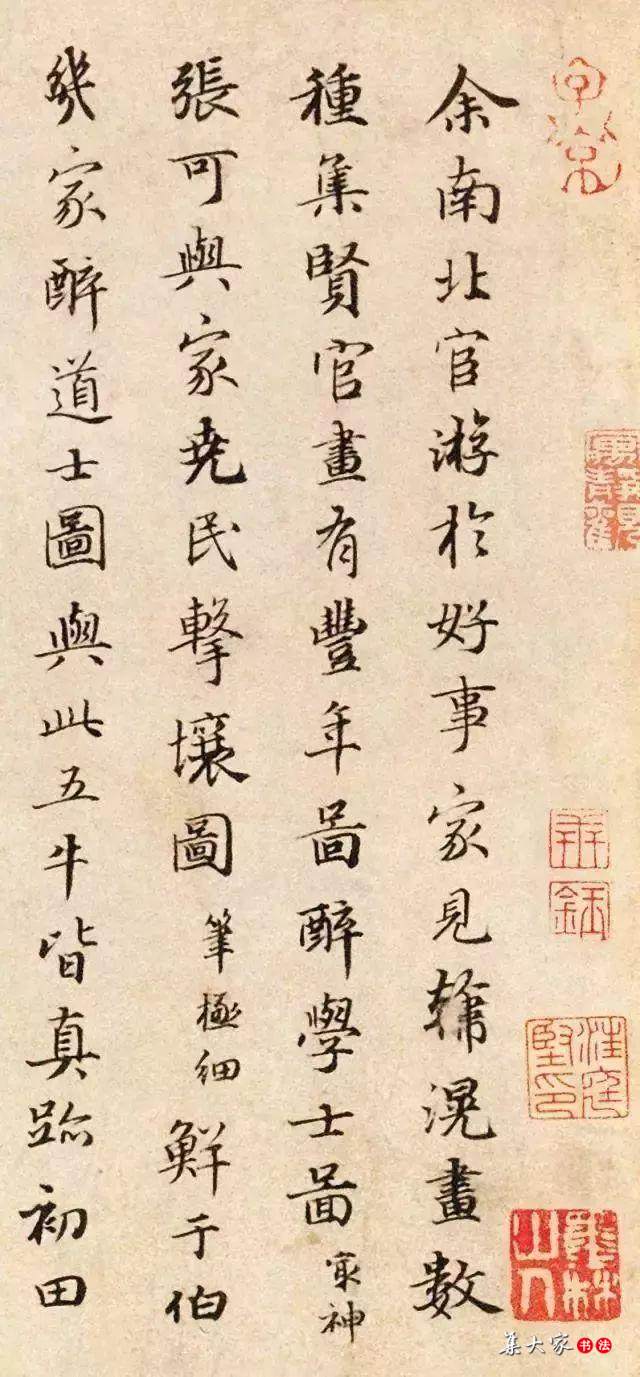 余南北官游於好事家見韓滉畫數
種集賢官畫有豐年啚醉學士啚㝡神
張可與家堯民擊壤圖筆極細鮮于伯
幾家醉道士圖與此五牛皆真跡初田
集大家书法